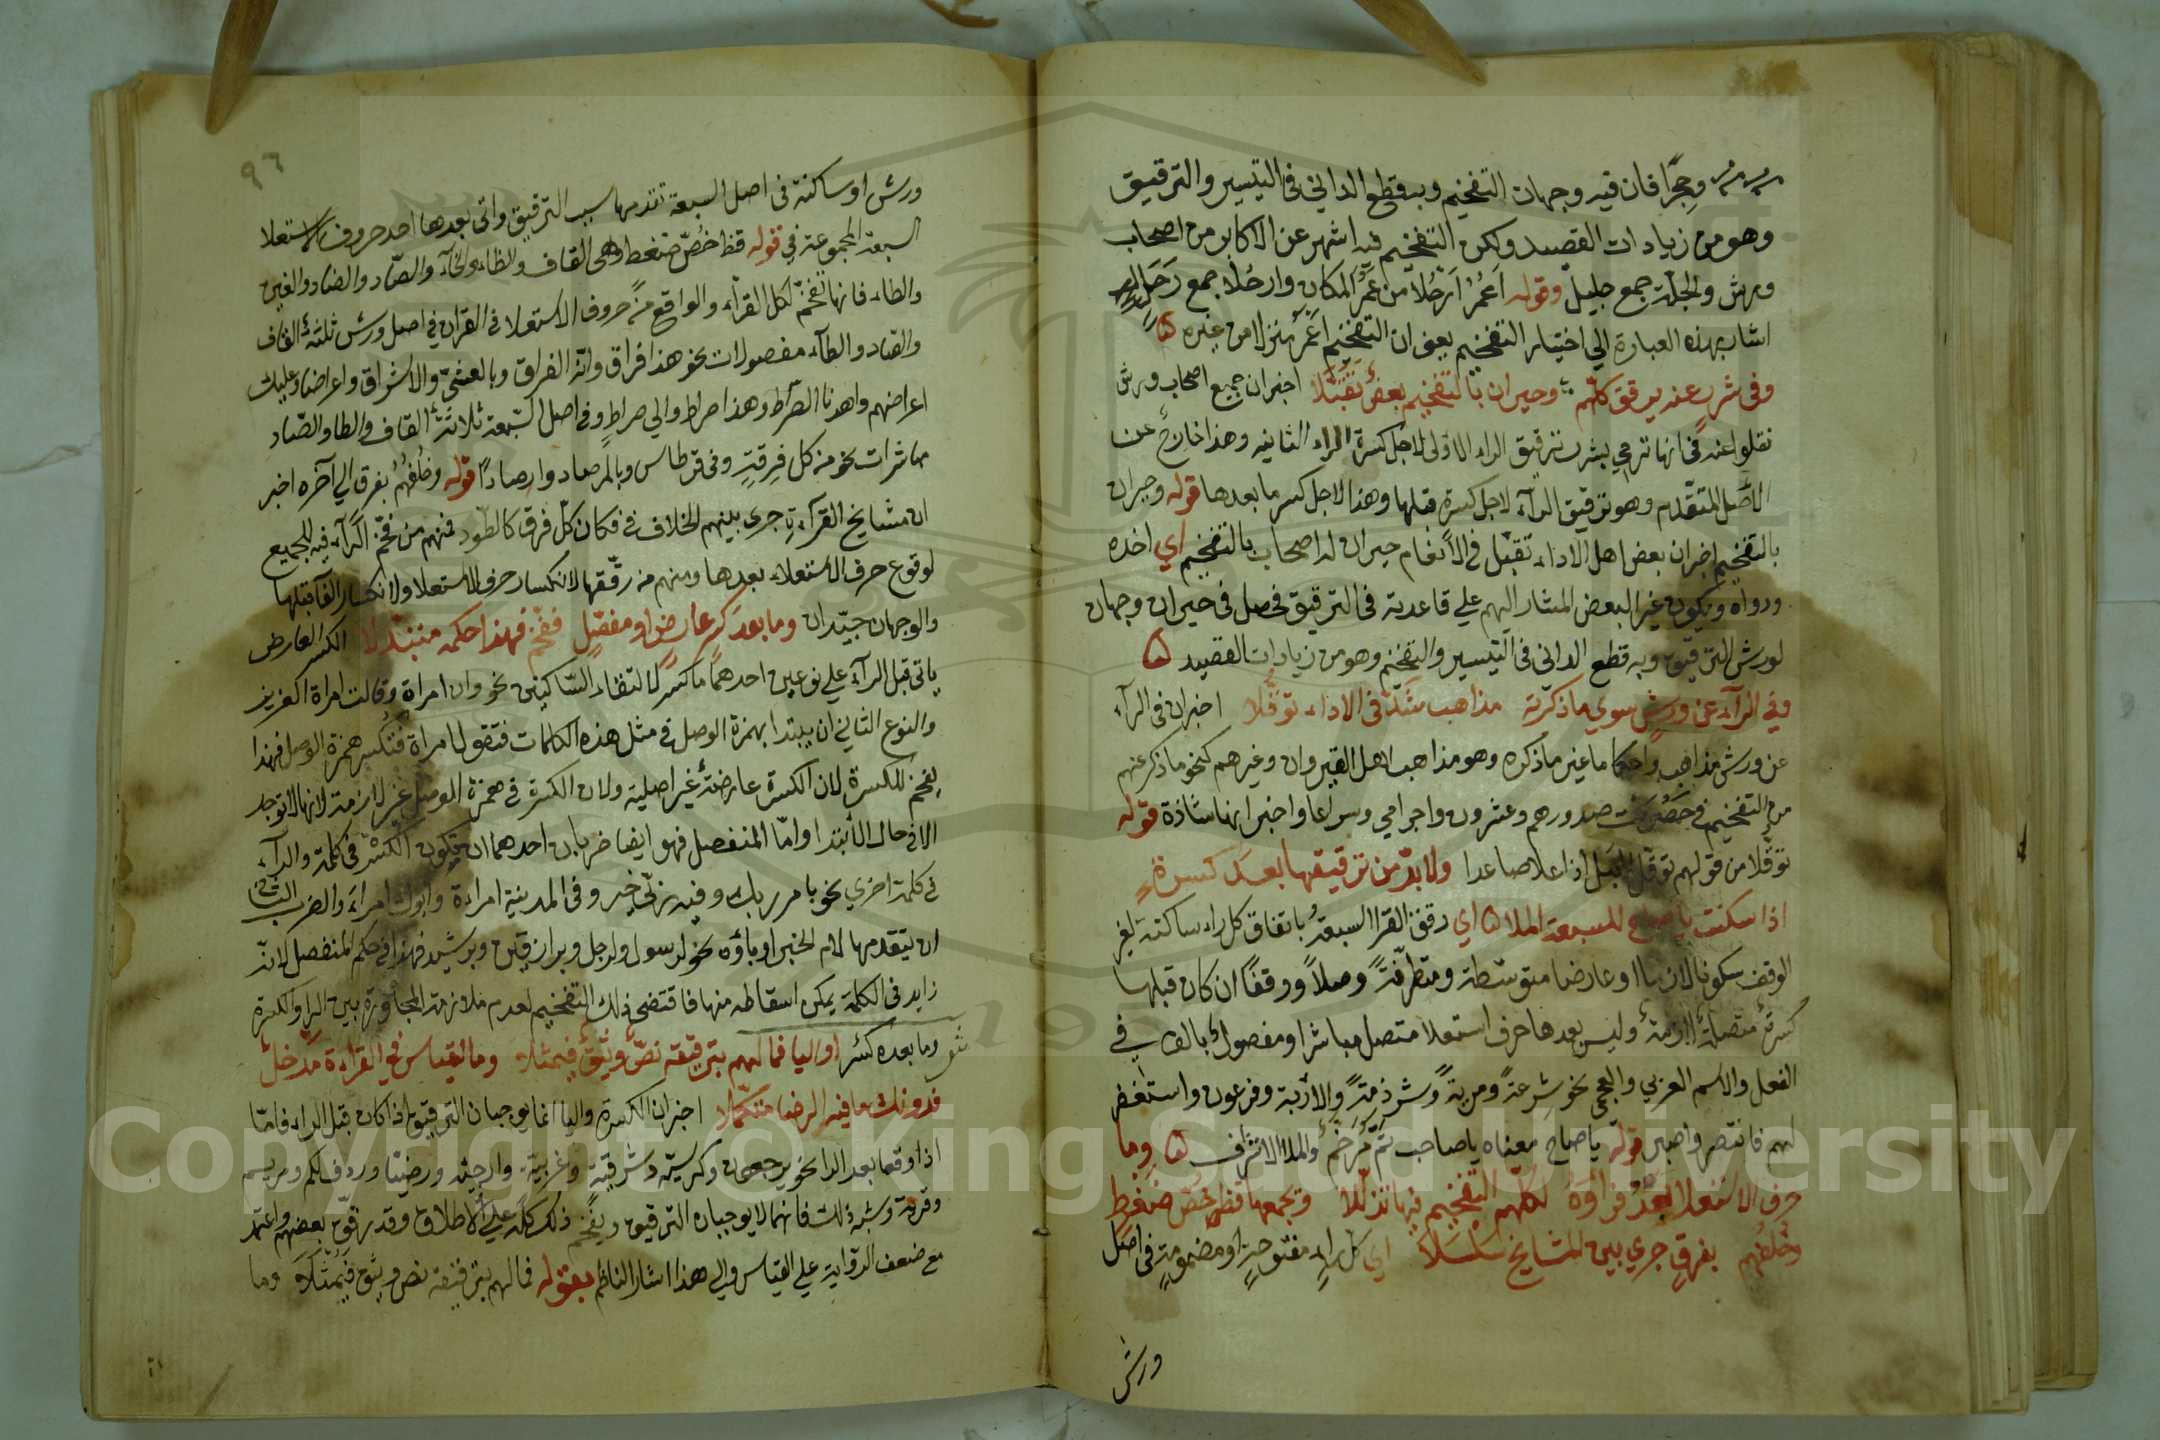 وحجرا فان فيه وجهان التفخيم وبه قطع الداني في التيسير والترقيق
وهو من زيادات القصيد ولكن التفخيم فيه اشهر عن الاكابر من اصحاب
ورش والجلة جمع جليل وقوله اعمر ارحلا من عمر المكان وارحلا جمع رحل
اشار بهذه العبارة الي اختيار التفخيم يعني ان التفخيم اعمر منزلا من غيره ه
وفي شرر عنه يرقق كلهم وحيران بالتفخيم بعض تقبلا اخبر ان جميع اصحاب ورش
نقلوا عنه في انها ترمي بشرر ترقيق الراء الاولى لاجل كسرة الراء الثانيه وهذا خارج عن
الاصل المتقدم وهو ترقيق الراء لاجل كسرة قبلها وهذا لاجل كسر ما بعدها قوله وحيران
بالتفخيم اخبر ان بعض اهل الاداء تقبل في الانعام حيران له اصحاب بالتفخيم اي اخذه
ورواه ويكون غير البعض المشار اليهم علي قاعدته في الترقيق فحصل في حيران وجهان
لورش الترقيق وبه قطع الداني في التيسير والتفخيم وهو من زيادات القصيد ه
وفي الراء عن ورش سوي ما ذكرته مذاهب شذت في الاداء توقلا اخبر ان في الراء
عن ورش مذاهب واحكاما غير ما ذكره وهو مذاهب اهل القيروان وغيرهم كنحو ما ذكر عنهم
من التفخيم في حصرت صدورهم وعشرون واجرامي وسراعا واخبر انها شاذة قوله
توقلا من قولهم توقل الجبل اذا علا صاعدا ولا بد من ترقيقها بعد كسرة
اذا سكنت يا صاح للسبعة الملا ه اي رقق القرا السبعة باتفاق كل راء ساكنة لغير
الوقف سكونا لازما او عارضا متوسطة ومتطرفة وصلا ووقفا ان كان قبلها
كسرة متصلة لازمة وليس بعدها حرف استعلا متصل مباشر او مفصول بالف في
الفعل والاسم العربي والعجمي نحو شرعة ومرية وشرذمة والاربة وفرعون واستغفر
لهم فانتصر واصبر قوله يا صاح معناه يا صاحب ثم رخم والملا الاشراف ه وما
حرف الاستعلا بعد فراؤه لكلهم التفخيم فيها تذللا وتجمعها قظ خص ضغط
وخلفهم بفرق جري بين المشايخ سلسلا اي كل راء مفتوحة او مضمومة في اصل
ورش
٩٦
ورش او ساكنة في اصل السبعة تقدمها سبب الترقيق واتى بعدها احد حروف الاستعلا
السبعة المجموعة في قوله قظ خص ضغط وهي القاف والظاء والخاء والصاد والضاد والغين
والطاء فانها تفخم لكل القراء والواقع من حروف الاستعلا في القران في اصل ورش ثلثة القاف
والضاد والطاء مفصولات نحو هذا فراق وانه الفراق وبالعشي والاشراق واعراضا وعليك
اعراضهم واهدنا الصراط وهذا صراط والي صراط وفي اصل السبعة ثلاثة القاف والطا والصاد
مباشرات نحو من كل فرقة وفي قرطاس وبالمرصاد وارصادا قوله وخلفهم بفرق الي آخره اخبر
ان مشايخ القراءة جري بينهم الخلاف في فكان كل فرق كالطود فمنهم من فخم الراء فيه للجميع
لوقوع حرف الاستعلاء بعدها ومنهم من رققها لانكسار حرف الاستعلا ولانكسار الفا قبلها
والوجهان جيدان وما بعد كسر عارض او مفصل ففخم فهذا حكمه متبذلا الكسر العارض
ياتي قبل الراء علي نوعين احدهما ما كسر لالتقاء الساكنين نحو وان امراة وقالت امراة العزيز
والنوع الثاني ان يبتدا بهمزة الوصل في مثل هذه الكلمات فتقول امراة فتكسر همزة الوصل فهذا
يفخم للكسرة لان الكسرة عارضة غير اصلية ولان الكسرة في همزة الوصل غير لازمة لانها لا توجد
الا في حال الابتدا واما المنفصل فهو ايضا ضربان احدهما ان تكون الكسرة في كلمة والراء
في كلمة اخري نحو بامر ربك وفيه ربي خير وفي المدينة امراءة وابوك امراء والضرب الثاني
ان يتقدمها لام الجر او باؤه نحو لرسول ولرجل وبرازقين وبرشيد فهذا في حكم المنفصل لانه
زايد في الكلمة يمكن اسقاطه منها فاقتضى ذلك التفخيم لعدم ملازمة المجاورة بين الرا والكسرة
وما بعده كسر او اليا فما لهم بترقيقه نص وثيق فيمثلا وما لقياس في القراءة مدخل
فدونك ما فيه الرضا متكملا اخبر ان الكسرة واليا انما يوجبان الترقيق اذا كان قبل الراء فاما
اذا وقعا بعد الرا نحو يرجعون وكرسيه وشرقية وغربية وارجئه ورضيتا وردف لكم ومريم
وقرية وشبه ذلك فانهما لا يوجبان الترقيق ويفخم ذلك كله علي الاطلاق وقد رقق بعضهم واعتمد
مع ضعف الرواية علي القياس والي هذا اشار الناظم بقوله فما لهم بترقيقه نص وثيق فيمثلا وما